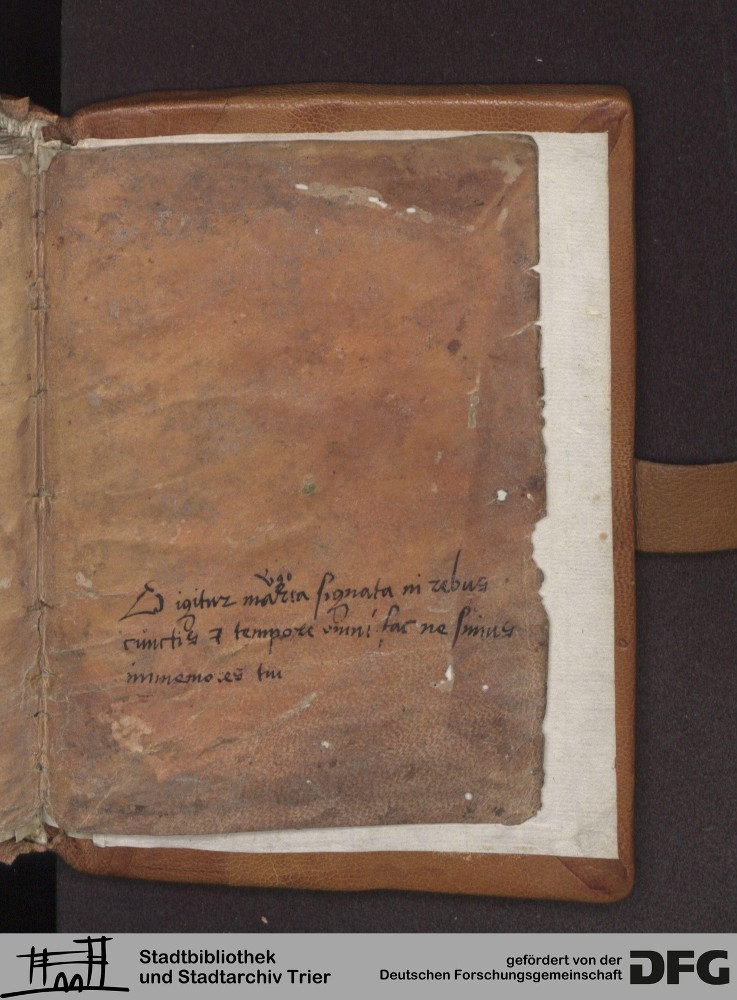 O igitur maria signata in rebus
cunctis ⁊ tempore omni fac ne simus
immemores tui
Stadtbibliothek
und Stadtarchiv Trier
gefördert von der
Deutschen Forschungsgemeinschaft
DFG